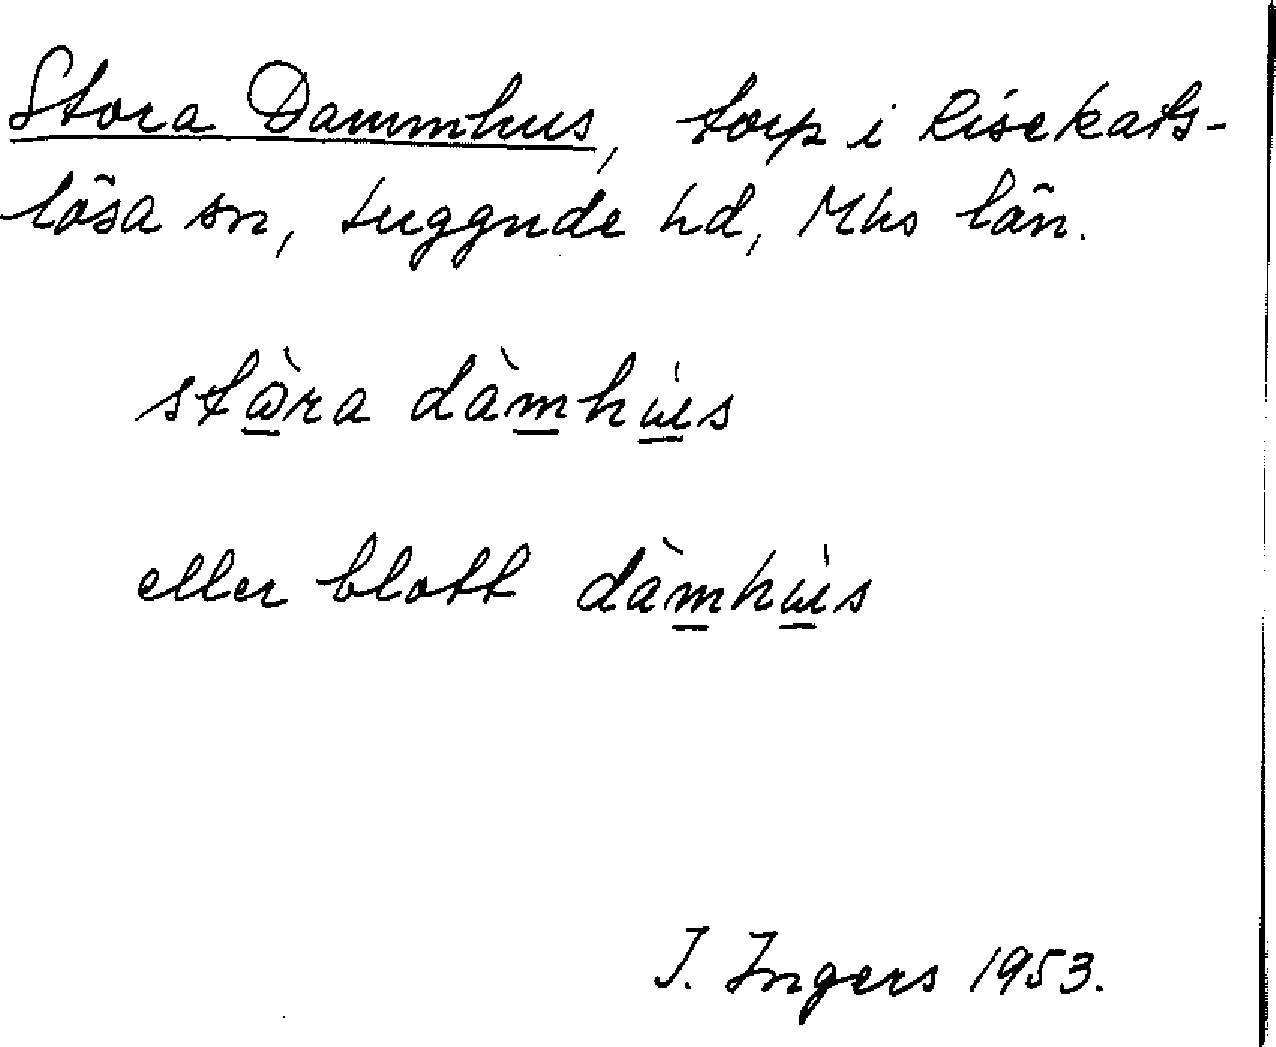 Stora Dammhus, torp i Risekats-
lösa sn, Luggude hd, Mhs län.
stòra dàmhu̍s
eller blott dàmhu̍s
I. Ingers 1953.